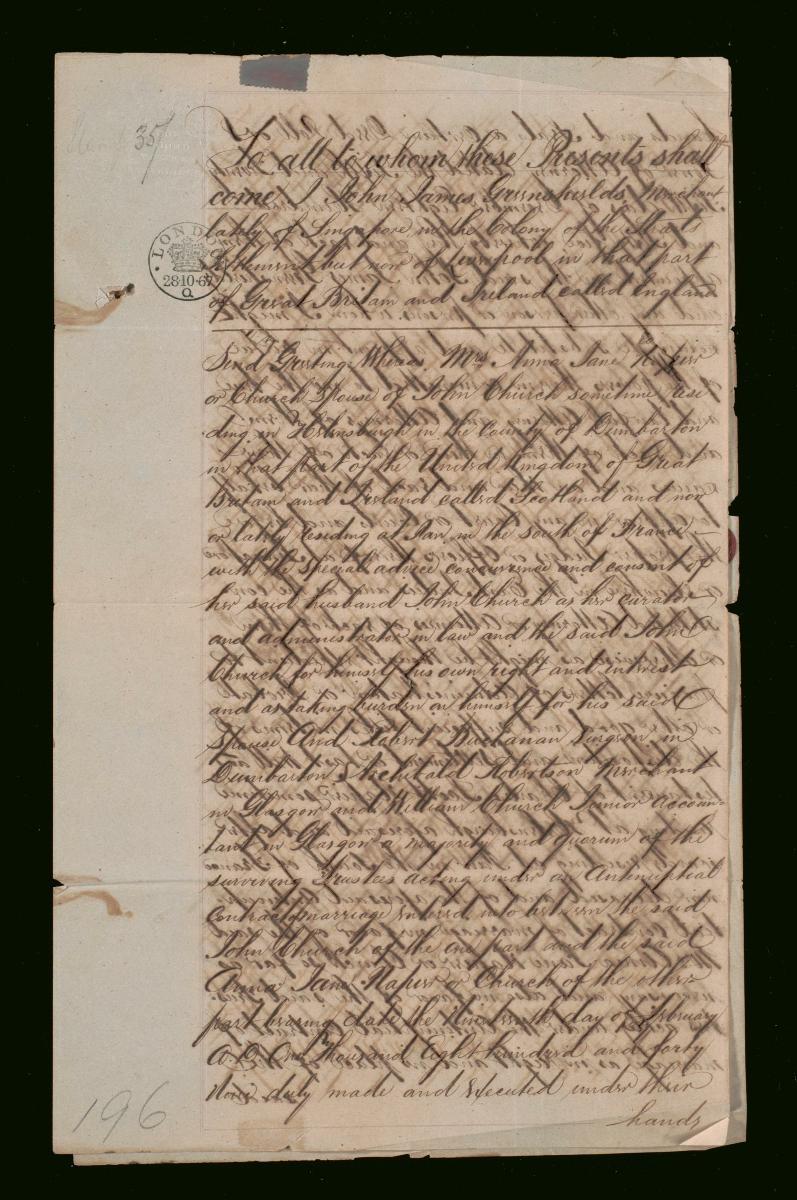 35
To all to whom these Presents shall
come I John James Greenshields Merchant
lately of Singapore in the Colony of the Straits
Settlement but now of Liverpool in that part
of Great Britain and Ireland called England
LONDON
28·10·67
Q
Send Greeting Whereas Mrs Anna Jane Napier
or Church Spouse of John Church sometime resi
ding in Helensburgh in the County of Dumbarton
in that part of the United Kingdom of Great
Britain and Ireland called Scotland and now
or lately residing at Pau in the south of France —
with the special advice concurrence and consent of
her said husband John Church as her curator
and administrator in law and the said John
Church for himself his own right and interest
and as taking burden on himself for his said
Spouse And Robert Buchanan Surgeon in
Dumbarton Archibald Robertson Merchant
in Glasgow and William Church Junior accoun-
tant in Glasgow a majority and quorum of the
surviving Trustees acting under an Antenuptial
contract of marriage entered into between the said
John Church of the one part and the said
Anna Jane Napier or Church of the other
part bearing date the Nineteenth day of February
A.D. One Thousand Eight hundred and forty
Nine duly made and executed under their
hands
196